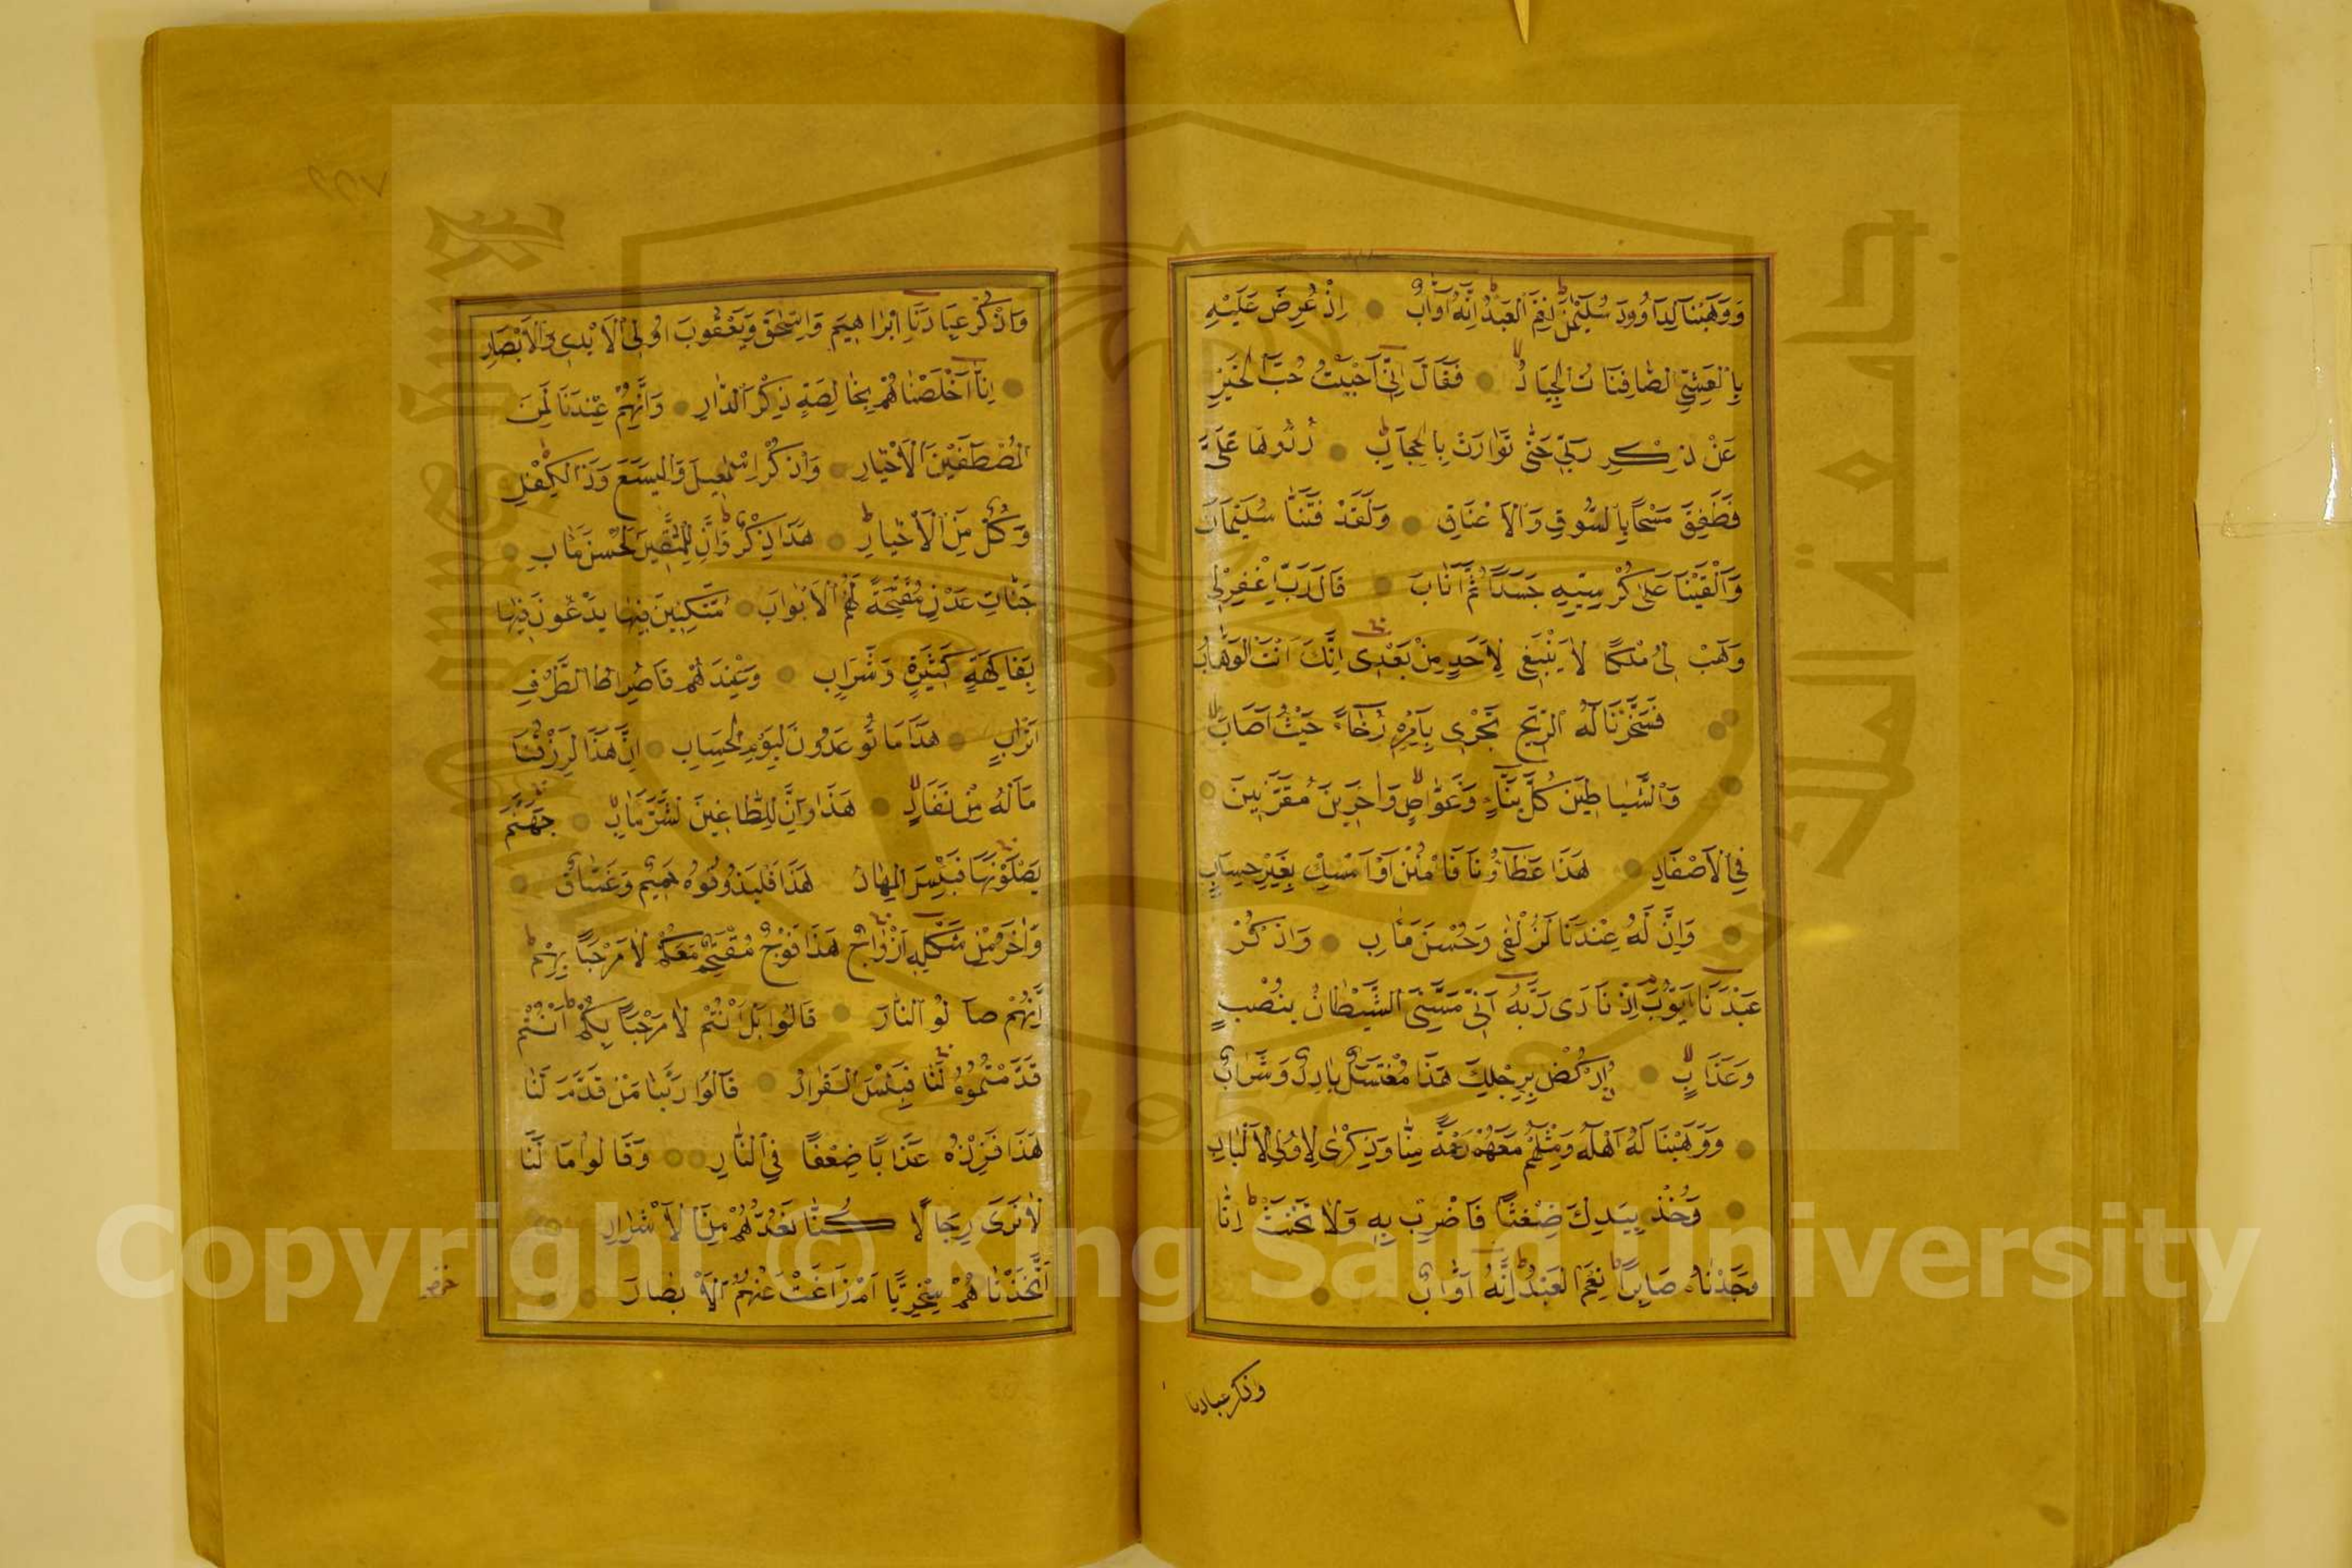 وَوَهَبْنَا لِدَاوُودَ سُلَيْمٰنَ نِعْمَ الْعَبْدُ اِنَّهُ اَوَّابٌ اِذْ عُرِضَ عَلَيْهِ
بِالْعَشِيِّ الصَّافِنَاتُ الْجِيَادُ فَقَالَ اِنِّي اَحْبَبْتُ حُبَّ الْخَيْرِ
عَنْ ذِكْرِ رَبِّي حَتّٰى تَوَارَتْ بِالْحِجَابِ رُدُّوهَا عَلَيَّ
فَطَفِقَ مَسْحًا بِالسُّوقِ وَالْاَعْنَاقِ وَلَقَدْ فَتَنَّا سُلَيْمَانَ
وَاَلْقَيْنَا عَلٰى كُرْسِيِّهِ جَسَدًا ثُمَّ اَنَابَ قَالَ رَبِّ اغْفِرْ لِي
وَهَبْ لِي مُلْكًا لَا يَنْبَغِي لِاَحَدٍ مِنْ بَعْدِي اِنَّكَ اَنْتَ الْوَهَّابُ
فَسَخَّرْنَا لَهُ الرِّيحَ تَجْرِي بِاَمْرِهِ رُخَاءً حَيْثُ اَصَابَ
وَالشَّيَاطِينَ كُلَّ بَنَّاءٍ وَغَوَّاصٍ وَاٰخَرِينَ مُقَرَّنِينَ
فِي الْاَصْفَادِ هَذَا عَطَاؤُنَا فَامْنُنْ اَوْ اَمْسِكْ بِغَيْرِ حِسَابٍ
وَاِنَّ لَهُ عِنْدَنَا لَزُلْفٰى وَحُسْنَ مَاٰبٍ وَاذْكُرْ
عَبْدَنَا اَيُّوبَ اِذْ نَادَى رَبَّهُ اَنِّي مَسَّنِيَ الشَّيْطَانُ بِنُصْبٍ
وَعَذَابٍ اُرْكُضْ بِرِجْلِكَ هَذَا مُغْتَسَلٌ بَارِدٌ وَشَرَابٌ
وَوَهَبْنَا لَهُ اَهْلَهُ وَمِثْلَهُمْ مَعَهُمْ رَحْمَةً مِنَّا وَذِكْرٰى لِاُولِي الْاَلْبَابِ
وَخُذْ بِيَدِكَ ضِغْثًا فَاضْرِبْ بِهِ وَلَا تَحْنَثْ اِنَّا
وَجَدْنَاهُ صَابِرًا نِعْمَ الْعَبْدُ اِنَّهُ اَوَّابٌ
وذكر عبادنا
وَاذْكُرْ عِبَادَنَا اِبْرَاهِيمَ وَاِسْحٰقَ وَيَعْقُوبَ اُولِي الْاَيْدِي وَالْاَبْصَارِ
اِنَّا اَخْلَصْنَاهُمْ بِخَالِصَةٍ ذِكْرَ الدَّارِ وَاِنَّهُمْ عِنْدَنَا لَمِنَ
الْمُصْطَفَيْنَ الْاَخْيَارِ وَاذْكُرْ اِسْمٰعِيلَ وَالْيَسَعَ وَذَا الْكِفْلِ
وَكُلٌّ مِنَ الْاَخْيَارِ هَذَا ذِكْرٌ وَاِنَّ لِلْمُتَّقِينَ لَحُسْنَ مَاٰبٍ
جَنَّاتِ عَدْنٍ مُفَتَّحَةً لَهُمُ الْاَبْوَابُ مُتَّكِئِينَ فِيهَا يَدْعُونَ فِيهَا
بِفَاكِهَةٍ كَثِيرَةٍ وَشَرَابٍ وَعِنْدَهُمْ قَاصِرَاتُ الطَّرْفِ
اَتْرَابٌ هَذَا مَا تُوعَدُونَ لِيَوْمِ الْحِسَابِ اِنَّ هَذَا لَرِزْقُنَا
مَا لَهُ مِنْ نَفَادٍ هَذَا وَاِنَّ لِلطَّاغِينَ لَشَرَّ مَاٰبٍ جَهَنَّمَ
يَصْلَوْنَهَا فَبِئْسَ الْمِهَادُ هَذَا فَلْيَذُوقُوهُ حَمِيمٌ وَغَسَّاقٌ
وَاٰخَرُ مِنْ شَكْلِهِ اَزْوَاجٌ هَذَا فَوْجٌ مُقْتَحِمٌ مَعَكُمْ لَا مَرْحَبًا بِهِمْ
اِنَّهُمْ صَالُو النَّارِ قَالُوا بَلْ اَنْتُمْ لَا مَرْحَبًا بِكُمْ اَنْتُمْ
قَدَّمْتُمُوهُ لَنَا فَبِئْسَ الْقَرَارُ قَالُوا رَبَّنَا مَنْ قَدَّمَ لَنَا
هَذَا فَزِدْهُ عَذَابًا ضِعْفًا فِي النَّارِ وَقَالُوا مَا لَنَا
لَا نَرَى رِجَالًا كُنَّا نَعُدُّهُمْ مِنَ الْاَشْرَارِ
اَتَّخَذْنَاهُمْ سِخْرِيًّا اَمْ زَاغَتْ عَنْهُمُ الْاَبْصَارُ
جامعة الملك سعود
King Saud University
1957
Copyright © King Saud University